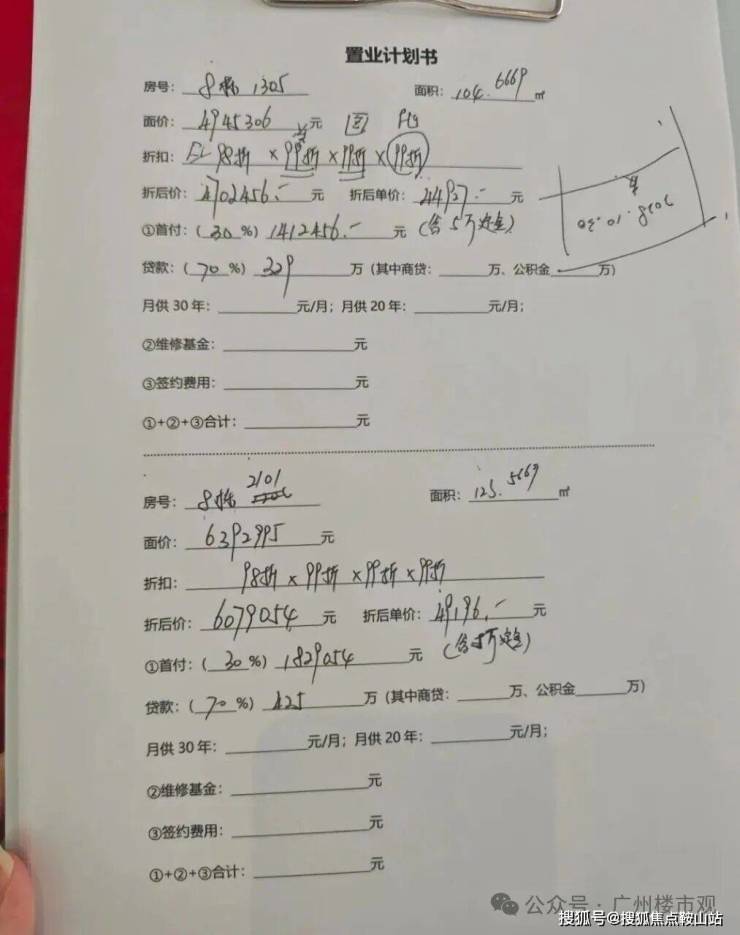 置业计划书
房号: 8栋 1305 面积: 104.6669 ㎡
面价: 4945306 元
折扣: 98折 × 99折 × 99折 × 99折
折后价: 4702456.- 元 折后单价: 44927.- 元
①首付: ( 30 %) 1412456.- 元 (含5万定金)
贷款: ( 70 %) 329 万 (其中商贷: 万、公积金 万)
月供 30 年: 元/月; 月供 20 年: 元/月;
②维修基金: 元
③签约费用: 元
①+②+③合计: 元
房号: 8栋 2101 面积: 123.5669 ㎡
面价: 6392995 元
折扣: 98折 × 99折 × 99折 × 99折
折后价: 6079054 元 折后单价: 49196.- 元
①首付: ( 30 %) 1829054 元 (含5万定金)
贷款: ( 70 %) 425 万 (其中商贷: 万、公积金 万)
月供 30 年: 元/月; 月供 20 年: 元/月;
②维修基金: 元
③签约费用: 元
①+②+③合计: 元
公众号 · 广州楼市观
搜狐号@搜狐焦点鞍山站